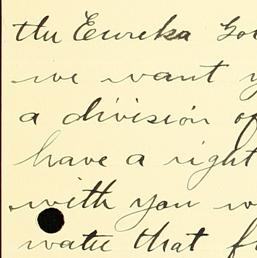 the Eureka Go
we want y
a division of
have a right
with you w
water that f